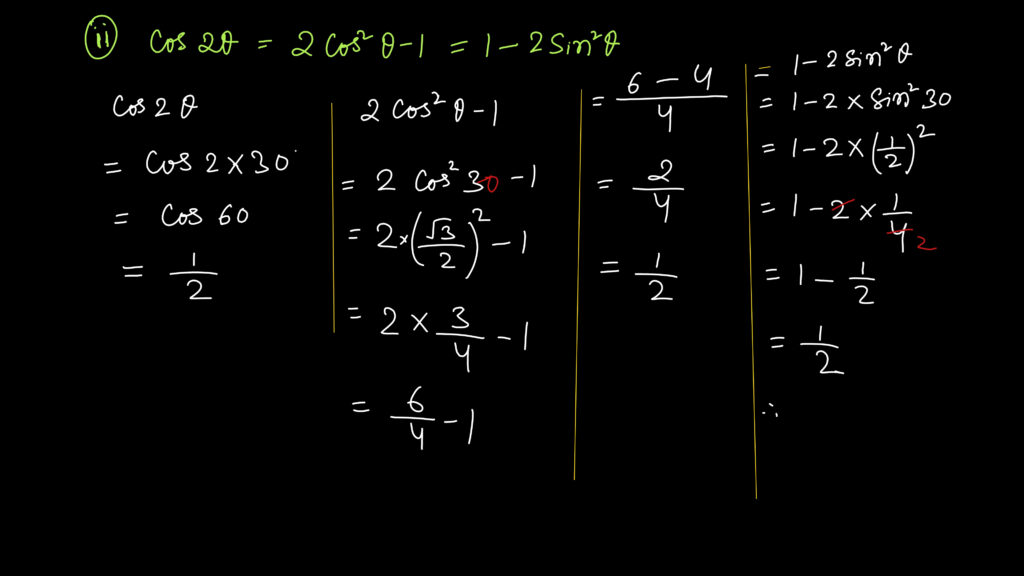 ii Cos 2θ = 2 Cos² θ - 1 = 1 - 2 Sin² θ
Cos 2 θ
= Cos 2 × 30
= Cos 60
= 1/2
2 Cos² θ - 1
= 2 Cos² 30 - 1
= 2 × (√3/2)² - 1
= 2 × 3/4 - 1
= 6/4 - 1
= 6 - 4/4
= 2/4
= 1/2
= 1 - 2 Sin² θ
= 1 - 2 × Sin² 30
= 1 - 2 × (1/2)²
= 1 - 2 × 1/4 2
= 1 - 1/2
= 1/2
∴